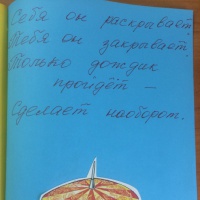 Себя он раскрывает,
Тебя он закрывает,
Только дождик
пройдёт —
Сделает наоборот.